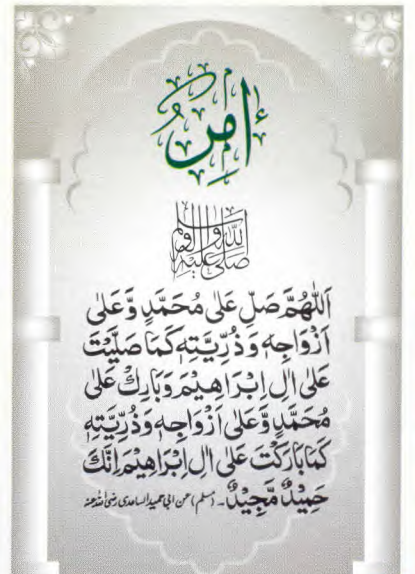 اٰمِرٌ
صَلَّى اللّٰهُ عَلَيْهِ وَاٰلِهٖ وَسَلَّمَ
اَللّٰهُمَّ صَلِّ عَلٰى مُحَمَّدٍ وَّعَلٰى
اَزْوَاجِهٖ وَذُرِّيَّتِهٖ كَمَا صَلَّيْتَ
عَلٰى اٰلِ اِبْرَاهِيْمَ وَبَارِكْ عَلٰى
مُحَمَّدٍ وَّعَلٰى اَزْوَاجِهٖ وَذُرِّيَّتِهٖ
كَمَا بَارَكْتَ عَلٰى اٰلِ اِبْرَاهِيْمَ اِنَّكَ
حَمِيْدٌ مَّجِيْدٌ۔ (مسلم) عن ابی حمید الساعدی رضی اللہ عنہ